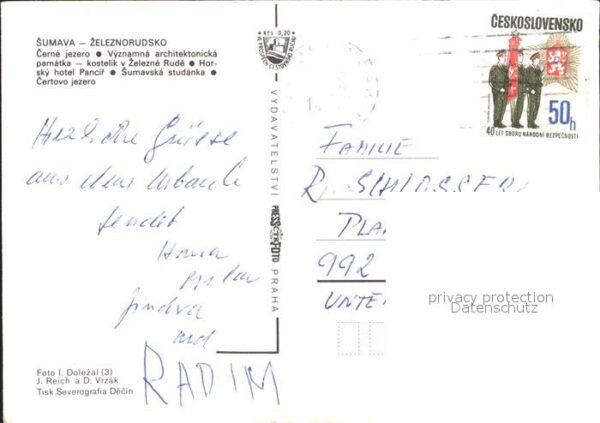 ŠUMAVA – ŽELEZNORUDSKO
Černé jezero ● Významná architektonická
památka — kostelík v Železné Rudě ● Hor-
ský hotel Pancíř ● Šumavská studánka ●
Čertovo jezero
Kčs 0,20
VYDAVATELSTVÍ PRESSFOTO PRAHA
ČESKOSLOVENSKO
50h
40 LET SBORU NÁRODNÍ BEZPEČNOSTI
Herzliche Grüsse
aus dem Urlaub
sendet
Hana
Jindra
und
RADIM
FAMILIE
PLA
992
UNTE
privacy protection
Datenschutz
Foto I. Doležal (3)
J. Reich a D. Vrzák
Tisk Severografia Děčín